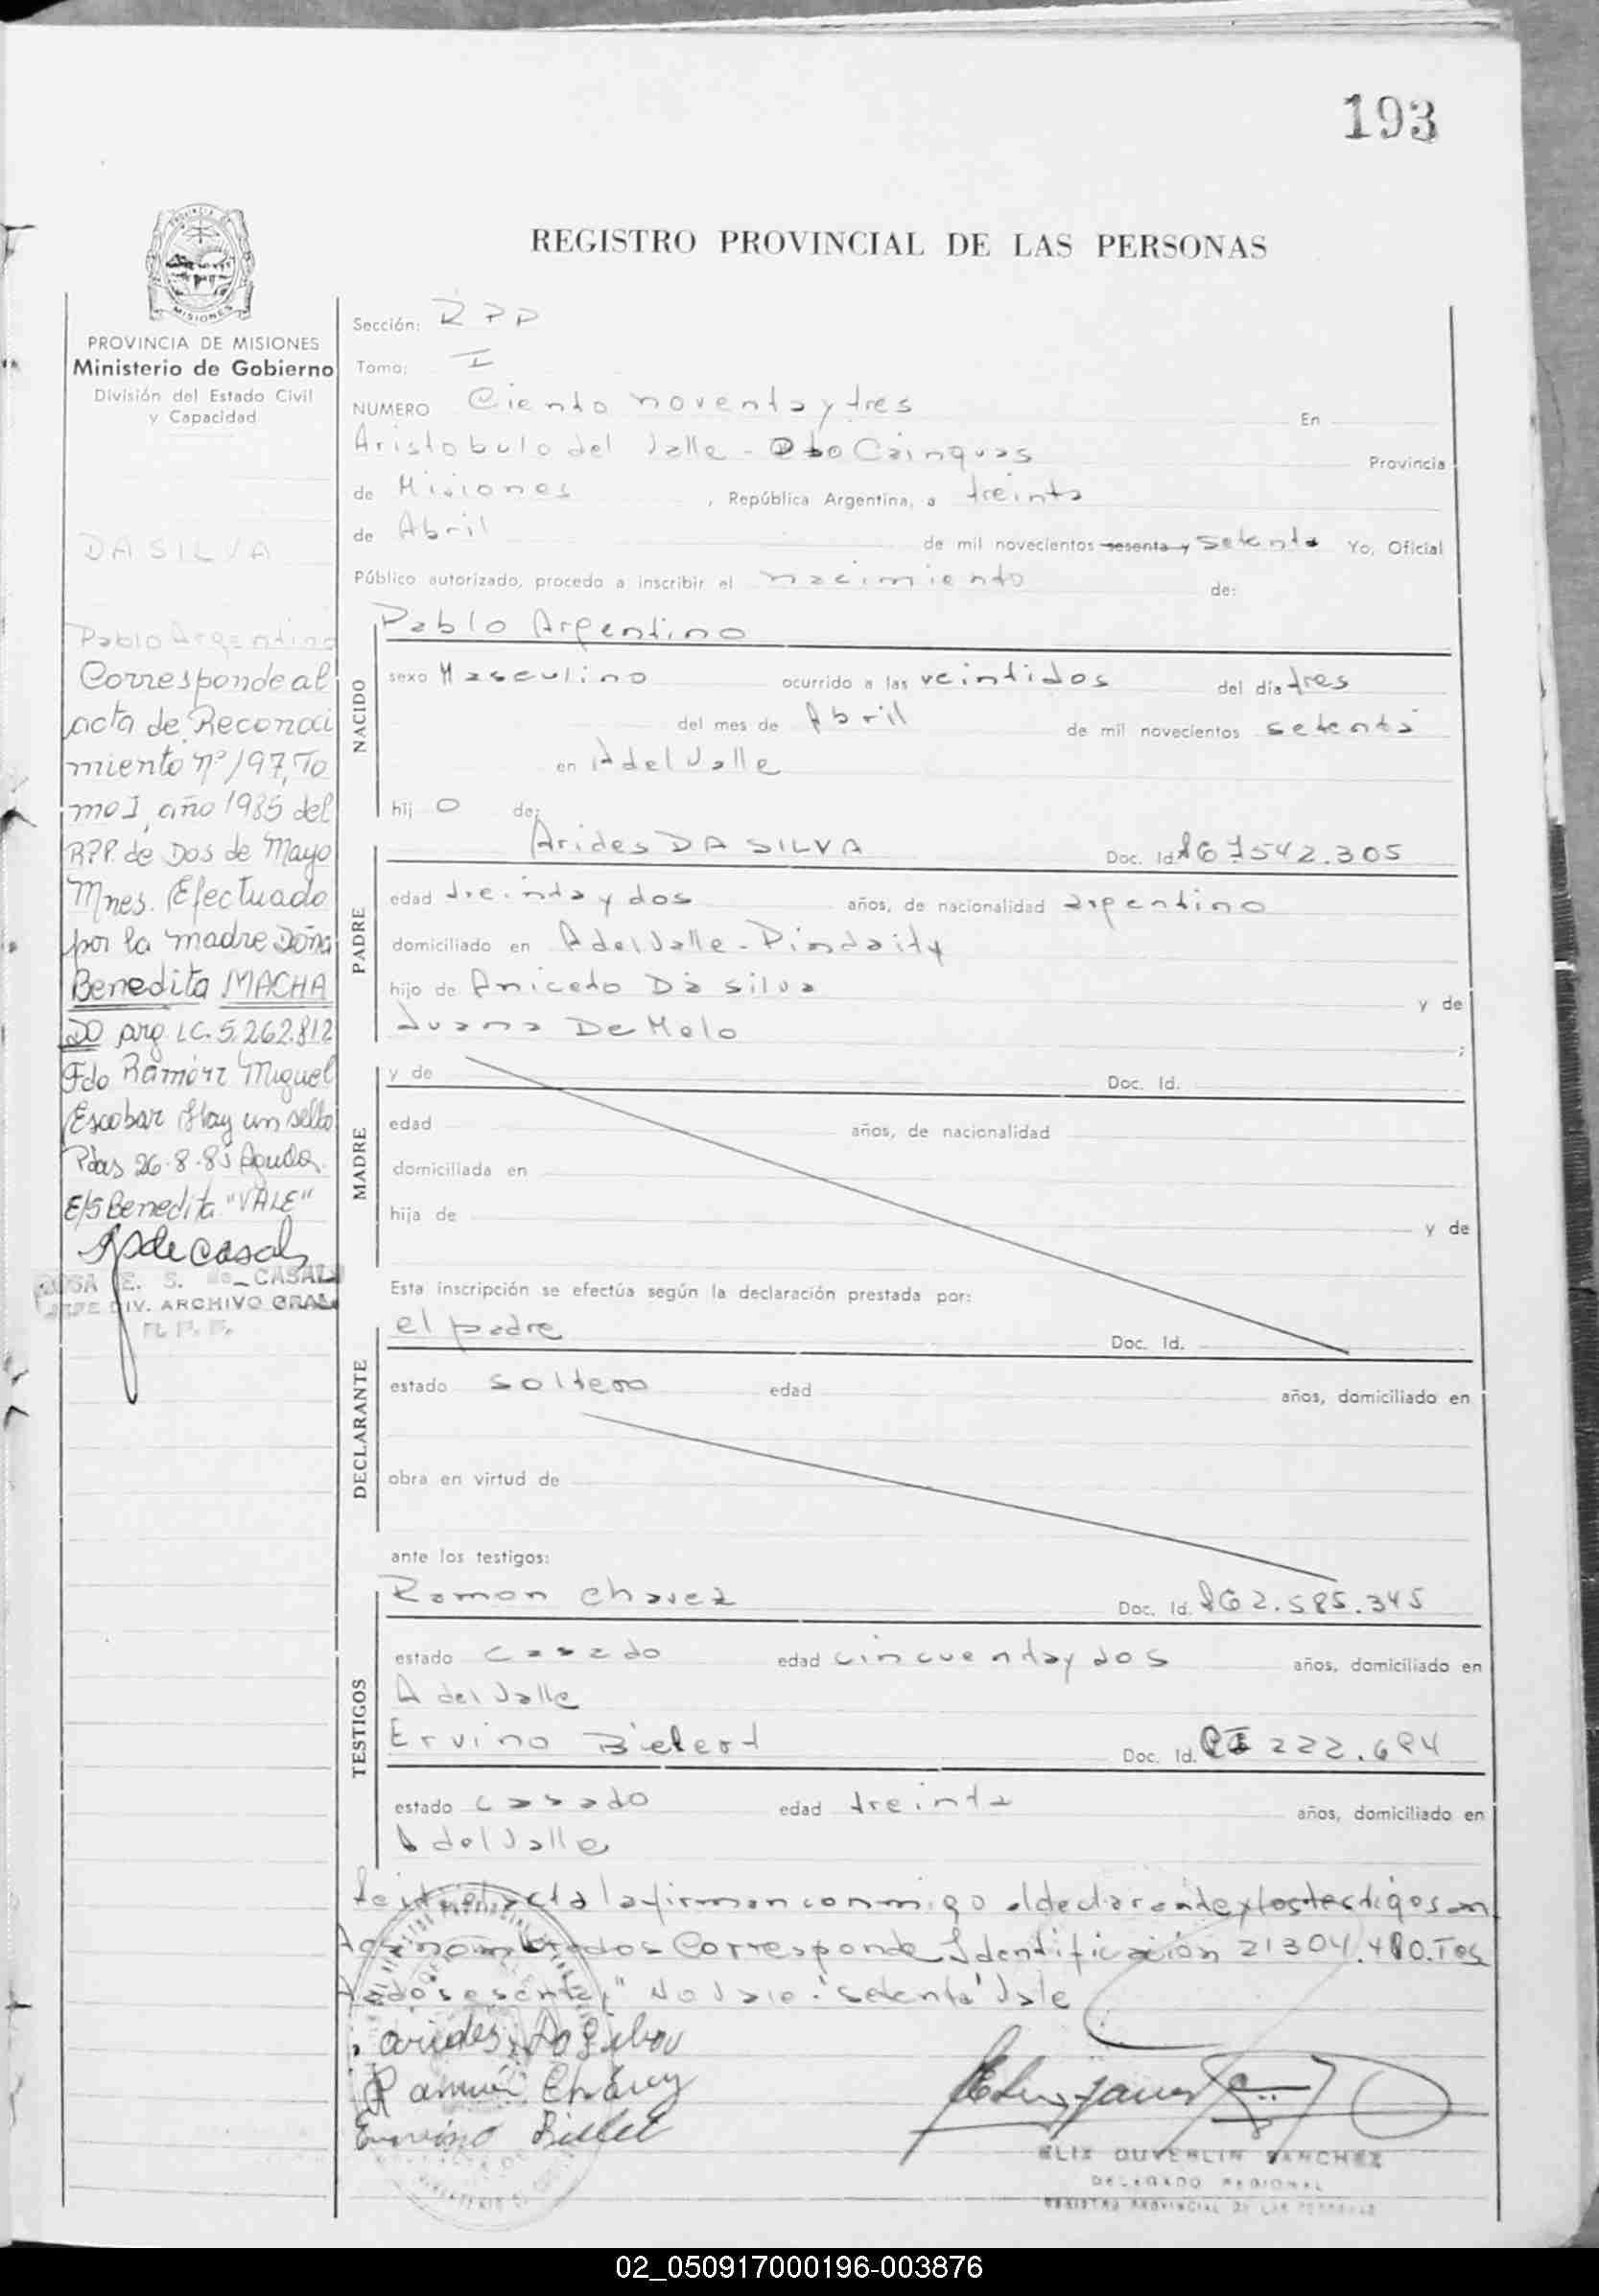 193
REGISTRO PROVINCIAL DE LAS PERSONAS
PROVINCIA DE MISIONES
Ministerio de Gobierno
División del Estado Civil
y Capacidad
DA SILVA
Pablo Argentino
Corresponde al
acta de Reconoci
miento nº 197, To
mo I, año 1985 del
R.P.P. de Dos de Mayo
Mnes. Efectuado
por la madre Doña
Benedita MACHA
DO arg. LC. 5.262.812
Fdo Ramón Miguel
Escobar Hay un sello
Pdas 26-8-85
E/S Benedita "VALE"
ROSA E. S. de CASALS
JEFE DIV. ARCHIVO GRAL
R. P. P.
Sección: RPP
Tomo: I
NUMERO Ciento noventa y tres En
Aristobulo del Valle - Dto Cainguas Provincia
de Misiones, República Argentina, a treinta
de Abril de mil novecientos sesenta y setenta Yo, Oficial
Público autorizado, procedo a inscribir el nacimiento de:
Pablo Argentino
NACIDO
sexo Masculino ocurrido a las veintidos del día tres
del mes de Abril de mil novecientos setenta
en A del Valle
hij o de:
PADRE
Arides DA SILVA Doc. Id. 7542.305
edad treinta y dos años, de nacionalidad argentino
domiciliado en A del Valle - Pindaity
hijo de Aniceto Da Silva y de
Juana De Melo ;
MADRE
y de Doc. Id.
edad años, de nacionalidad
domiciliada en
hija de y de
Esta inscripción se efectúa según la declaración prestada por:
DECLARANTE
el padre Doc. Id.
estado soltero edad años, domiciliado en
obra en virtud de
ante los testigos:
TESTIGOS
Ramon Chavez Doc. Id. 2.585.345
estado casado edad cincuenta y dos años, domiciliado en
A del Valle
Ervino Bielert Doc. Id. 222.694
estado casado edad treinta años, domiciliado en
A del Valle
Leida el acta la firman conmigo el declarante y los testigos an
nombrados Corresponde Identificación 21304.480. Tes
tado "sesenta y" No Vale: "setenta" Vale
arides Da Silva
Ramón Chávez
Ervino
ELIX DUVERLIN SANCHEZ
DELEGADO REGIONAL
REGISTRO PROVINCIAL DE LAS PERSONAS
02_050917000196-003876